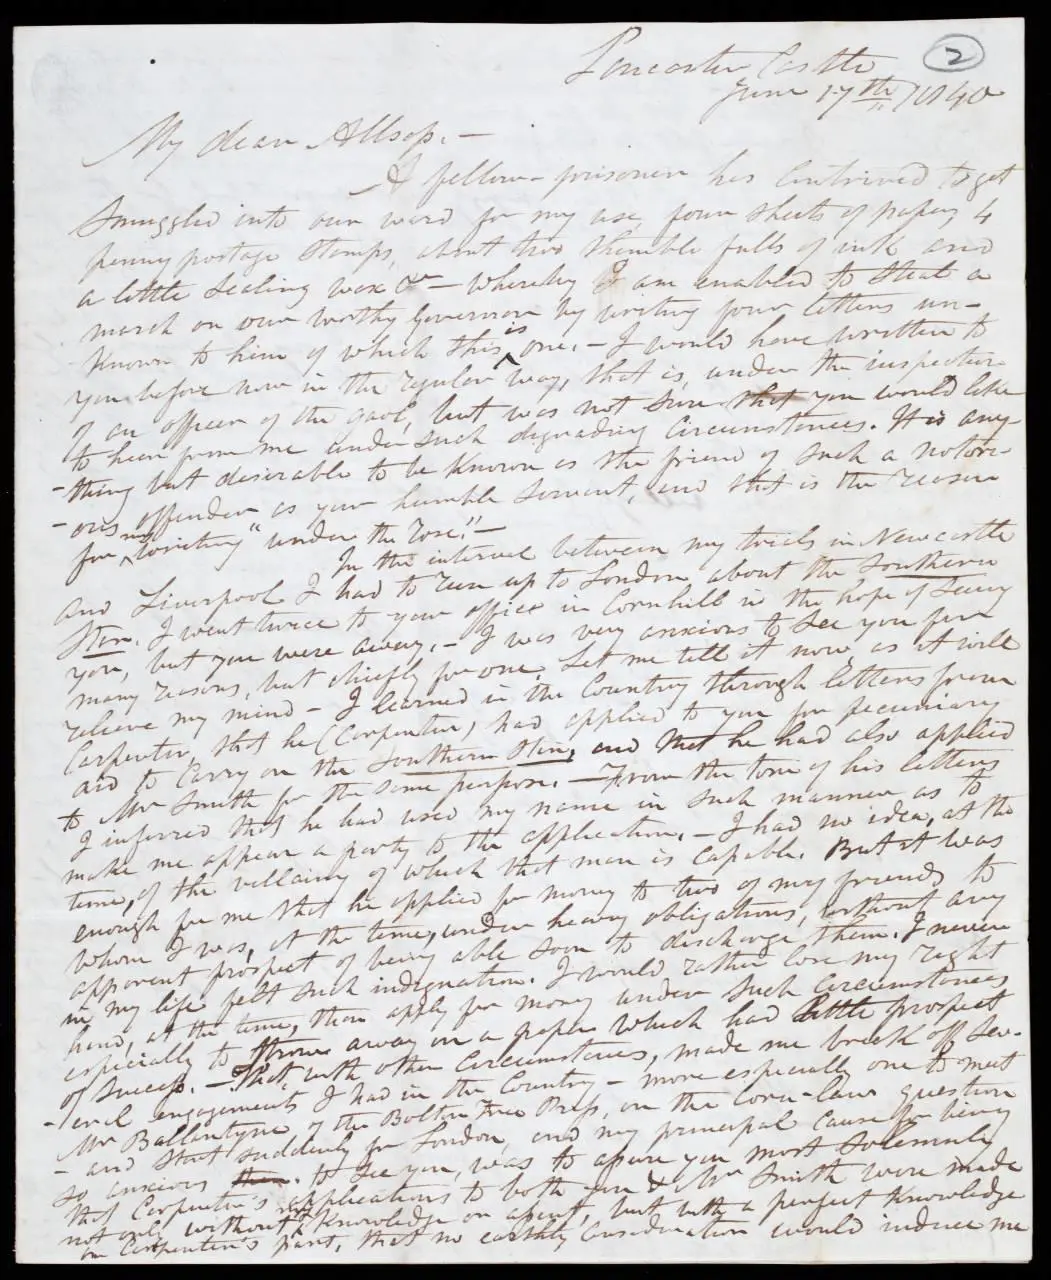 2
Lancaster Castle
June 17th, /1840
My dear Allsop. —
A fellow-prisoner has contrived to get
smuggled into our ward for my use, four sheets of paper, 4
penny postage stamps, about two thimble fulls of ink and
a little sealing wax &c — whereby I am enabled to steal a
march on our worthy Governor by writing four letters un-
known to him of which this is one. — I would have written to
you before now in the regular way, that is, under the inspection
of an officer of the gaol, but was not sure that you would like
to hear from me under such degrading circumstances. It is any-
-thing but desirable to be known as the friend of such a notori-
-ous offender as your humble servant, and that is the reason
for my writing "under the rose." —
In the interval between my trials in Newcastle
and Liverpool I had to run up to London about the Southern
Star. I went twice to your office in Cornhill in the hope of seeing
you, but you were away. — I was very anxious to see you for
many reasons, but chiefly for one. Let me tell it now as it will
relieve my mind — I learned in the Country through letters from
Carpenter, that he (Carpenter) had applied to you for pecuniary
aid to carry on the Southern Star, and that he had also applied
to Mr Smith for the same purpose. — From the tone of his letters
I inferred that he had used my name in such manner as to
make me appear a party to the application. — I had no idea, at the
time, of the villainy of which that man is capable. But it was
enough for me that he applied for money to two of my friends to
whom I was, at the time, under heavy obligations, without any
apparent prospect of being able soon to discharge them. I never
in my life felt such indignation. I would rather lose my right
hand, at the time, than apply for money under such circumstances
especially to throw away on a paper which had little prospect
of success. — That, with other circumstances, made me break off sev-
-eral engagements I had in the Country — more especially one to meet
Mr Ballantyne of the Bolton Free Press, on the Corn-law question
- and start suddenly for London, and my principal cause for being
so anxious to see you, was to assure you most solemnly
that Carpenter's applications to both you & Mr Smith were made
not only without my knowledge or assent, but with a perfect knowledge
on Carpenter's part, that no earthly consideration would induce me